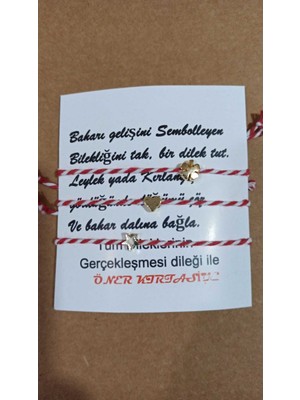 Baharı gelişini Sembolleyen
Bilekliğini tak, bir dilek tut.
Leylek yada Kırlangıç
Ve bahar dalına bağla.
Tüm
Gerçekleşmesi dileği ile
ÖNER KIRTASİYE